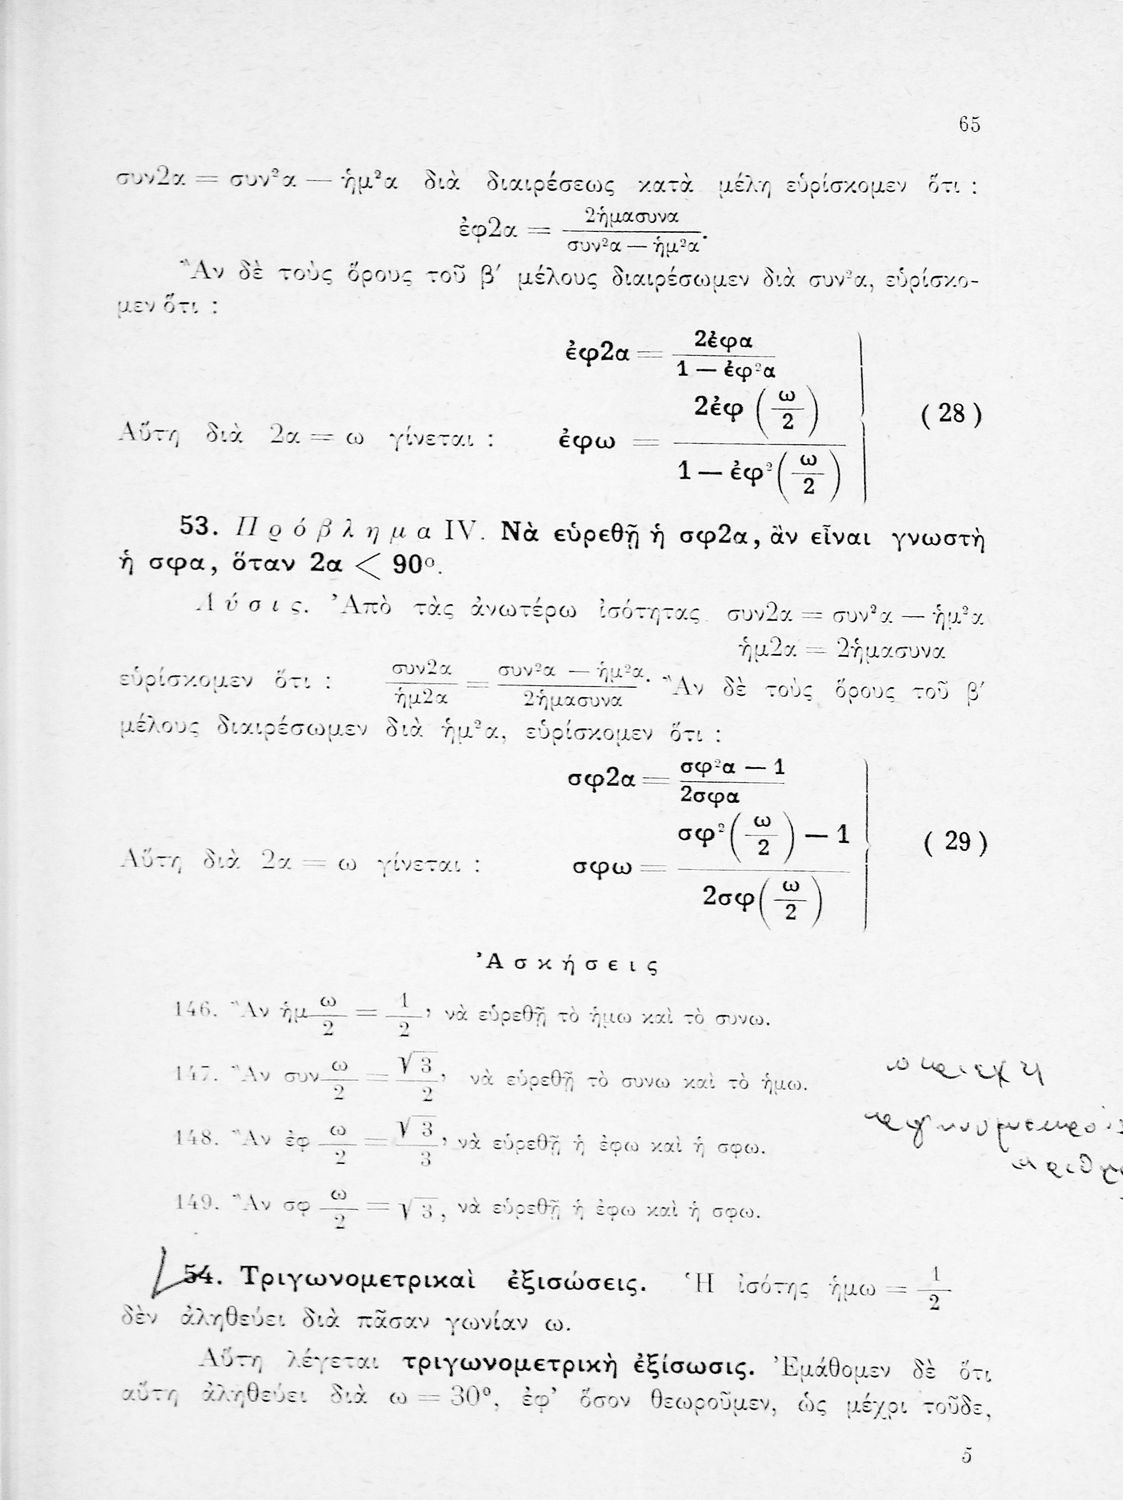 65
συν2α = συν²α — ἡμ²α διὰ διαιρέσεως κατὰ μέλη εὑρίσκομεν ὅτι :
ἐφ2α = 2ἡμασυνα / συν²α — ἡμ²α .
Ἂν δὲ τοὺς ὅρους τοῦ β′ μέλους διαιρέσωμεν διὰ συν²α, εὑρίσκο-
μεν ὅτι :
ἐφ2α = 2ἐφα / 1 — ἐφ²α
Αὕτη διὰ 2α = ω γίνεται : ἐφω = 2ἐφ (ω/2) / 1 — ἐφ² (ω/2) ( 28 )
53. Πρόβλημα IV. Νὰ εὑρεθῇ ἡ σφ2α, ἂν εἶναι γνωστὴ
ἡ σφα, ὅταν 2α < 90°.
Λύσις. Ἀπὸ τὰς ἀνωτέρω ἰσότητας συν2α = συν²α — ἡμ²α
ἡμ2α = 2ἡμασυνα
εὑρίσκομεν ὅτι : συν2α / ἡμ2α = συν²α — ἡμ²α / 2ἡμασυνα . Ἂν δὲ τοὺς ὅρους τοῦ β′
μέλους διαιρέσωμεν διὰ ἡμ²α, εὑρίσκομεν ὅτι :
σφ2α = σφ²α — 1 / 2σφα
Αὕτη διὰ 2α = ω γίνεται : σφω = σφ² (ω/2) — 1 / 2σφ (ω/2) ( 29 )
Ἀσκήσεις
146. Ἂν ἡμ ω/2 = 1/2, νὰ εὑρεθῇ τὸ ἡμω καὶ τὸ συνω.
147. Ἂν συν ω/2 = √3/2, νὰ εὑρεθῇ τὸ συνω καὶ τὸ ἡμω.
148. Ἂν ἐφ ω/2 = √3/3, νὰ εὑρεθῇ ἡ ἐφω καὶ ἡ σφω.
149. Ἂν σφ ω/2 = √3, νὰ εὑρεθῇ ἡ ἐφω καὶ ἡ σφω.
54. Τριγωνομετρικαὶ ἐξισώσεις. Ἡ ἰσότης ἡμω = 1/2
δὲν ἀληθεύει διὰ πᾶσαν γωνίαν ω.
Αὕτη λέγεται τριγωνομετρικὴ ἐξίσωσις. Ἐμάθομεν δὲ ὅτι
αὕτη ἀληθεύει διὰ ω = 30°, ἐφ' ὅσον θεωροῦμεν, ὡς μέχρι τοῦδε,
5